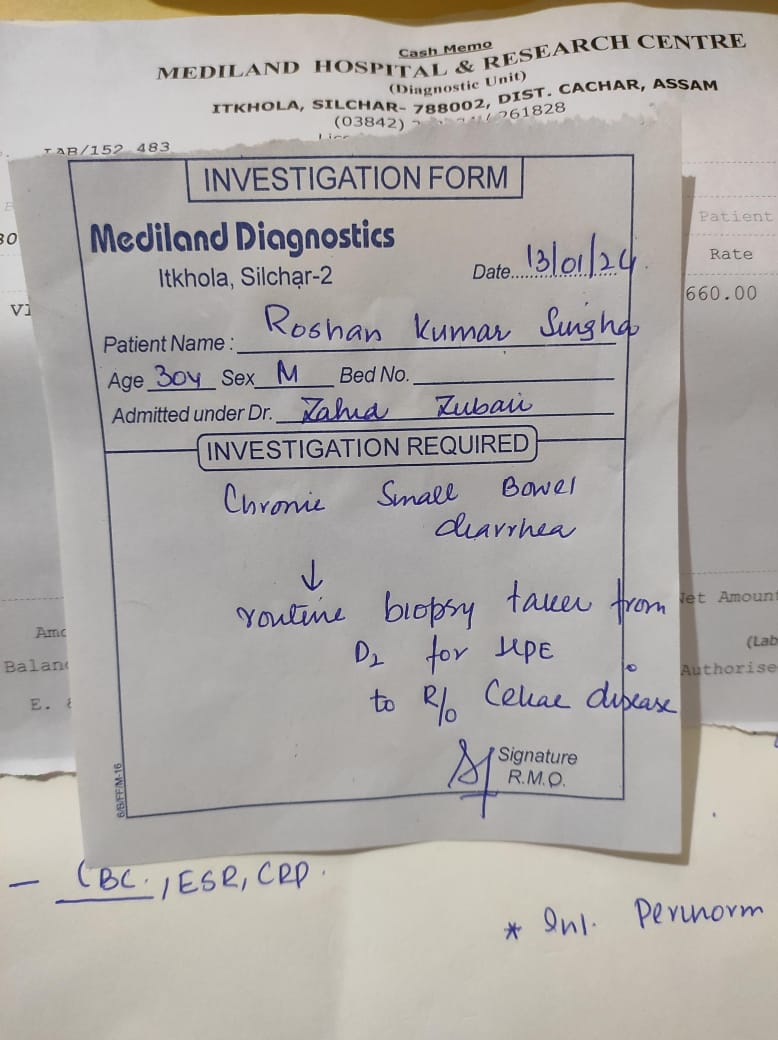 Cash Memo
MEDILAND HOSPITAL & RESEARCH CENTRE
(Diagnostic Unit)
ITKHOLA, SILCHAR- 788002, DIST. CACHAR, ASSAM
(03842) 261828
LAB/152 483
INVESTIGATION FORM
Mediland Diagnostics
Itkhola, Silchar-2
Date 13/01/24
Patient Name : Roshan Kumar Singha
Age 30y Sex M Bed No.
Admitted under Dr. Zahid Zubair
INVESTIGATION REQUIRED
Chronic Small Bowel
diarrhea
↓
routine biopsy taken from
D2 for HPE
to R/o Celiac disease
Signature
R.M.O.
6/B/FF/M-16
Patient
Rate
660.00
Net Amount
(Lab
Authorise
Balan
E. &
- CBC, ESR, CRP.
* Inl. Perinorm